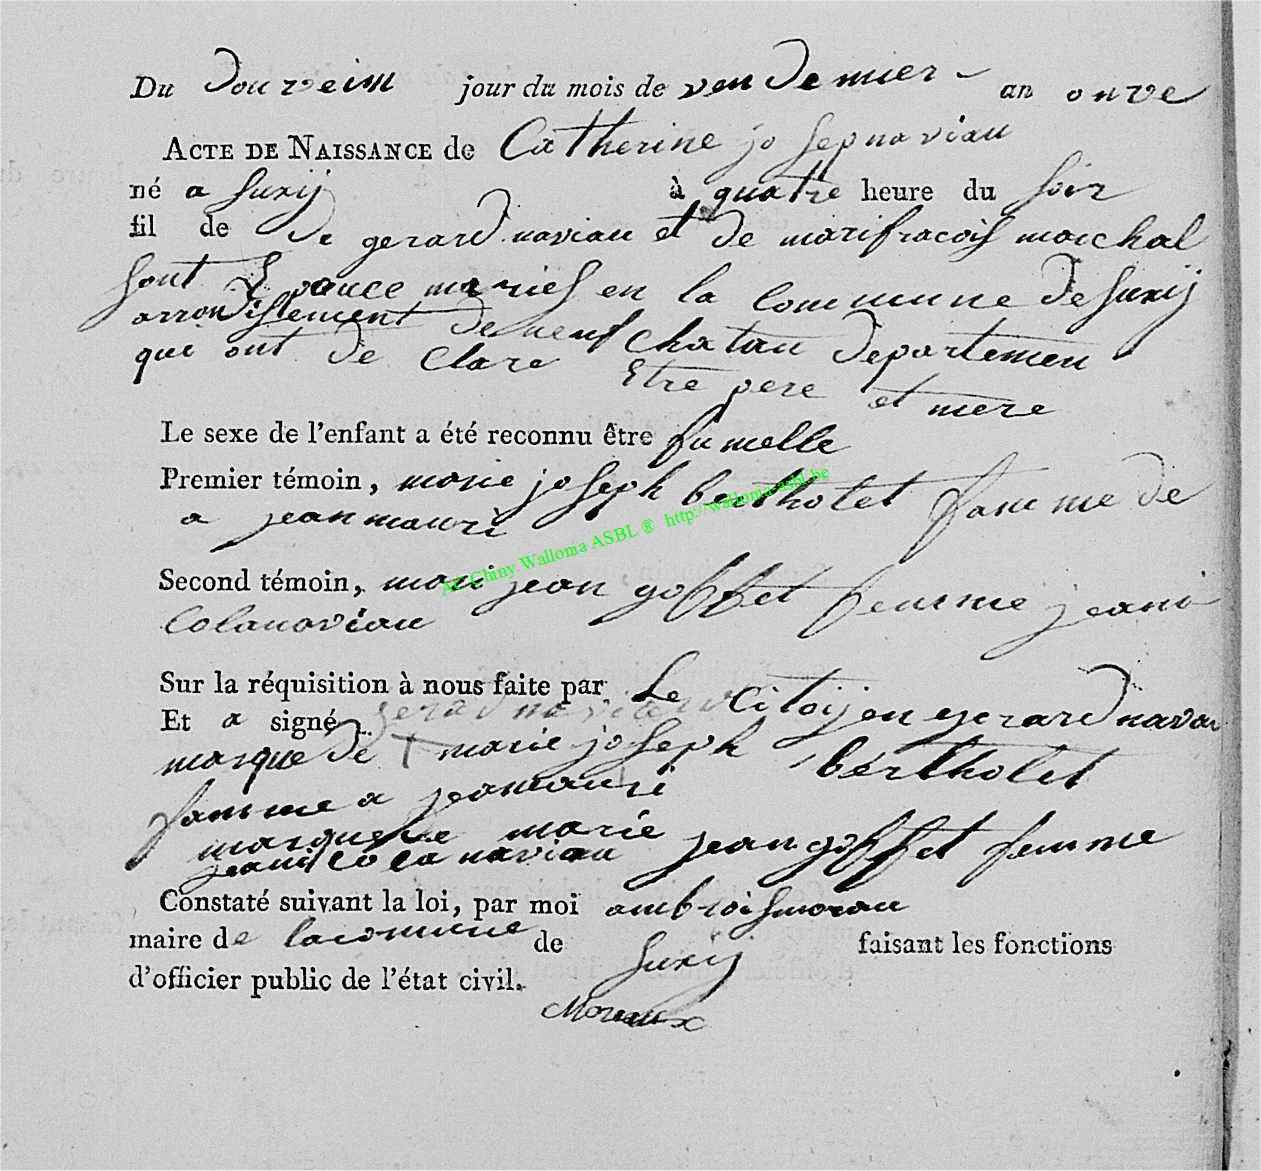 Du douzeim jour du mois de vendemier an onze
ACTE DE NAISSANCE de Catherine josepnaviau
né a Suxij à quatre heure du soir
fil de de gerard naviau et de marifracois marchal
sont Epouce mariés en la commune de Suxij
arrondissement de neufchatau departemen
qui ont de clare Etre pere et mere
Le sexe de l'enfant a été reconnu être fumelle
Premier témoin, marie joseph bertholet famme de
a jeanmauri
Second témoin, mari jean goffet femme jeani
colanaviau
Sur la réquisition à nous faite par Le Citoijen gerard navau
Et a signé gerard naviau
marque de † marie joseph bertholet
famme a jeamauri
marque de marie jean goffet femme
jeanicolanaviau
Constaté suivant la loi, par moi ambroismorau
maire de lacomune de Suxij faisant les fonctions
d'officier public de l'état civil.
Moreaux
AC Chiny Wallonia ASBL ® http://wallonia-asbl.be